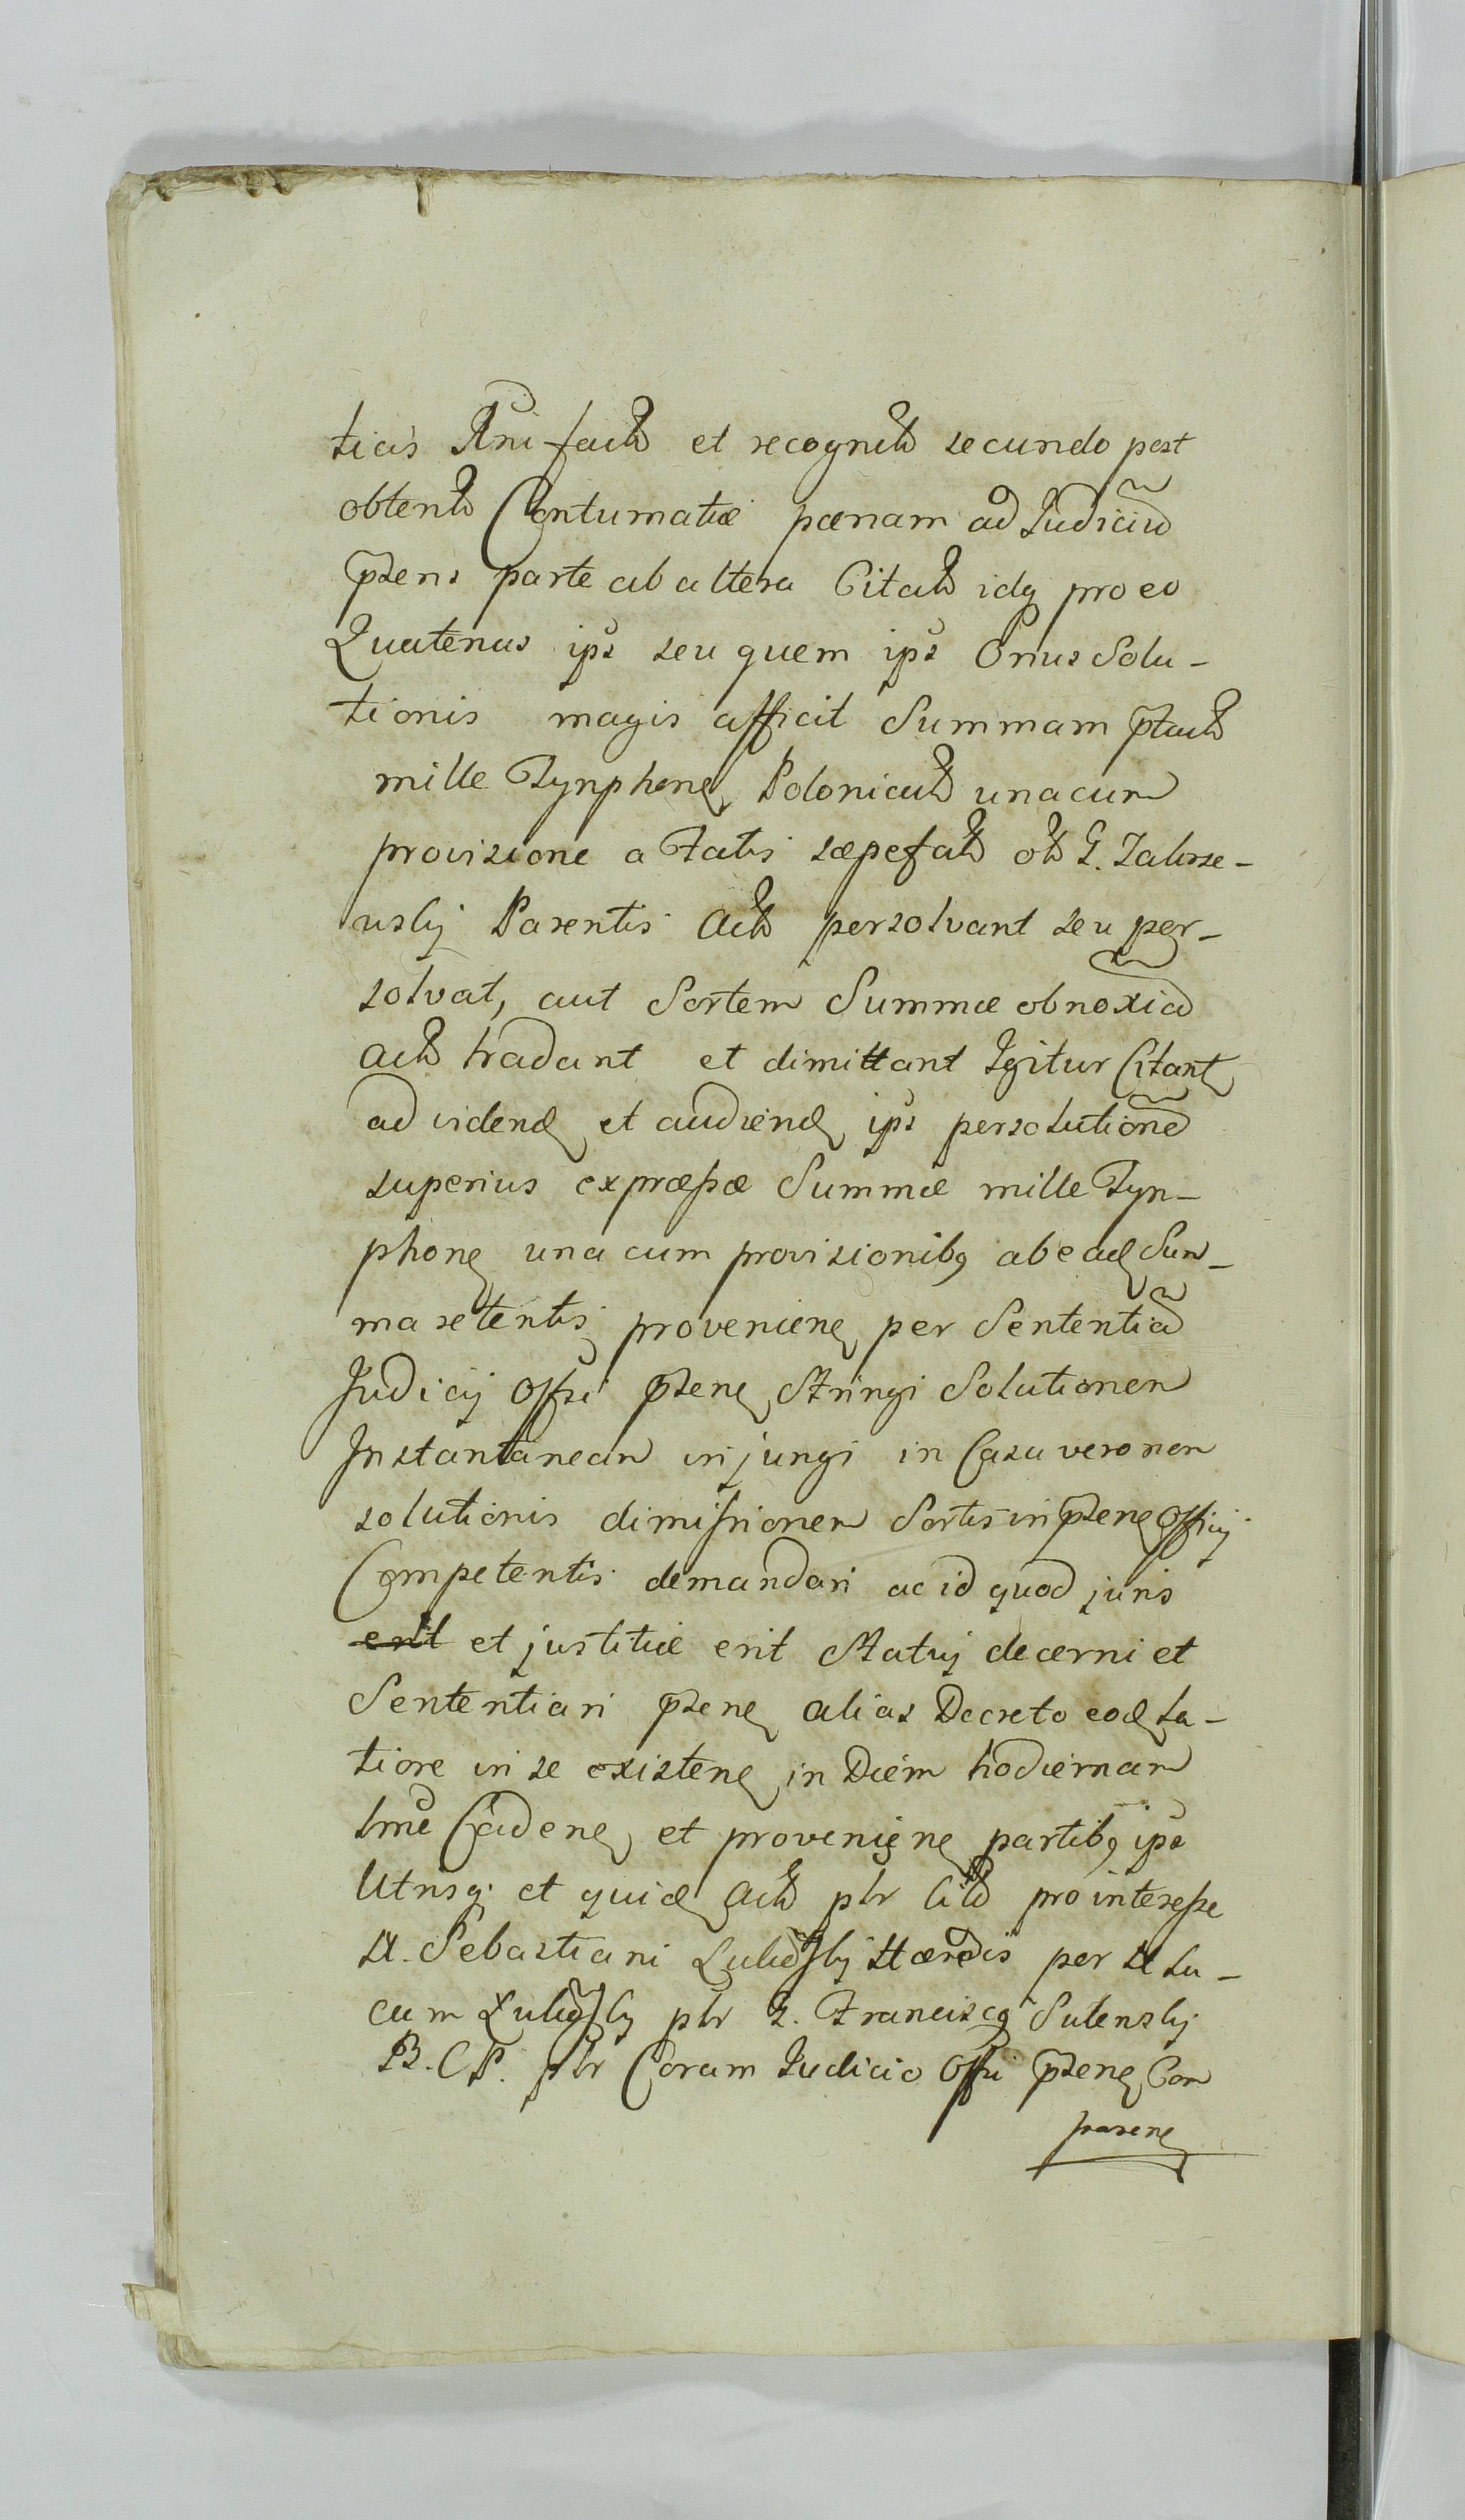 ticis et recognit secundo post
obtent Contumatiæ pœnam ad Judiciũ
pñns parte ab altera Citat idq pro eo
Quatenus ips seu quem ips Onus Solu-
tionis magis afficit Summam
mille Tynphonꝫ Polonical unacum
provisione a Fatis sæpefat ol G. Zalisze-
wskij Parentis Act persolvant seu per-
solvat, aut Sortem Summæ obnoxiã
Act tradant et dimittant Igitur Citant
ad videnꝫ et audienꝫ ips persolutionẽ
superius expræssæ Summæ mille Tyn-
phonꝫ una cum provisionibꝫ ab eadꝫ Sum-
ma retentis provenienꝫ per Sententiã
Judicij Offi pñsenꝫ Stringi Solutionem
Instantaneam injungi in Casu vero non
solutionis dimissionem Sortis in pñsenꝫ Officij
Competentis demandari ac id quod juris
erit et justitiæ erit Statuj decerni et
Sententiari pñsenꝫ alias Decreto eodꝫ La-
tiore in se existenꝫ in Diem hodiernam
Cadenꝫ et provenienꝫ partibꝫ ips
Utrisqꝫ et quidꝫ Act ptr Citt pro interesse
N. Sebastiani Hæredis per N Lu-
cam ptr G. Franciscꝫ Sulenskij
B. C P. ptr Coram Judicio Offi pñsenꝫ Com
parenꝫ